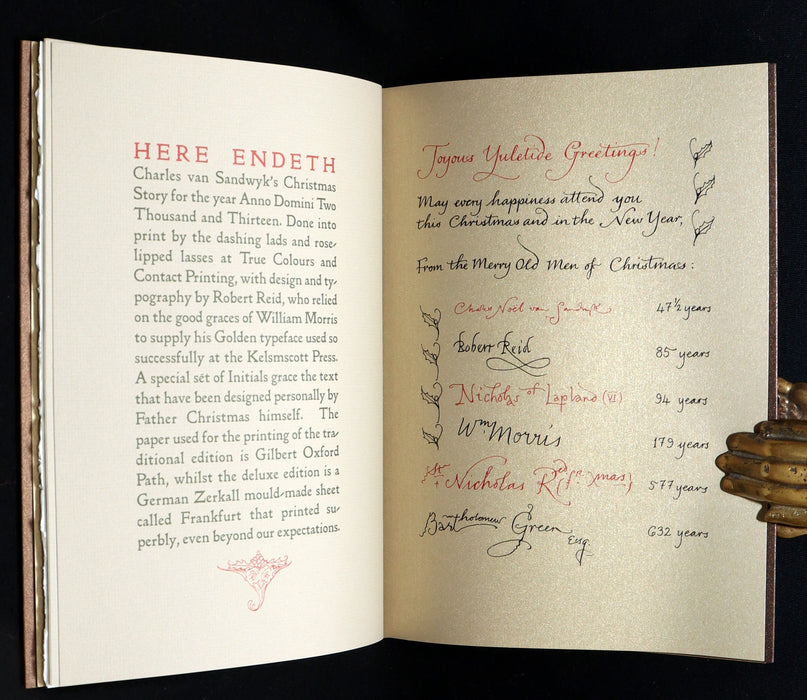 HERE ENDETH
Charles van Sandwyk's Christmas
Story for the year Anno Domini Two
Thousand and Thirteen. Done into
print by the dashing lads and rose-
lipped lasses at True Colours and
Contact Printing, with design and ty-
pography by Robert Reid, who relied
on the good graces of William Morris
to supply his Golden typeface used so
successfully at the Kelsmscott Press.
A special set of Initials grace the text
that have been designed personally by
Father Christmas himself. The
paper used for the printing of the tra-
ditional edition is Gilbert Oxford
Path, whilst the deluxe edition is a
German Zerkall mould-made sheet
called Frankfurt that printed su-
perbly, even beyond our expectations.
Joyous Yuletide Greetings!
May every happiness attend you
this Christmas and in the New Year,
From the Merry Old Men of Christmas:
Charles Noel van Sandwyk 47½ years
Robert Reid 85 years
Nicholas of Lapland (VI) 94 years
Wm. Morris 179 years
St. Nicholas Red (fr. Xmas) 577 years
Bartholomew Green Esq. 632 years